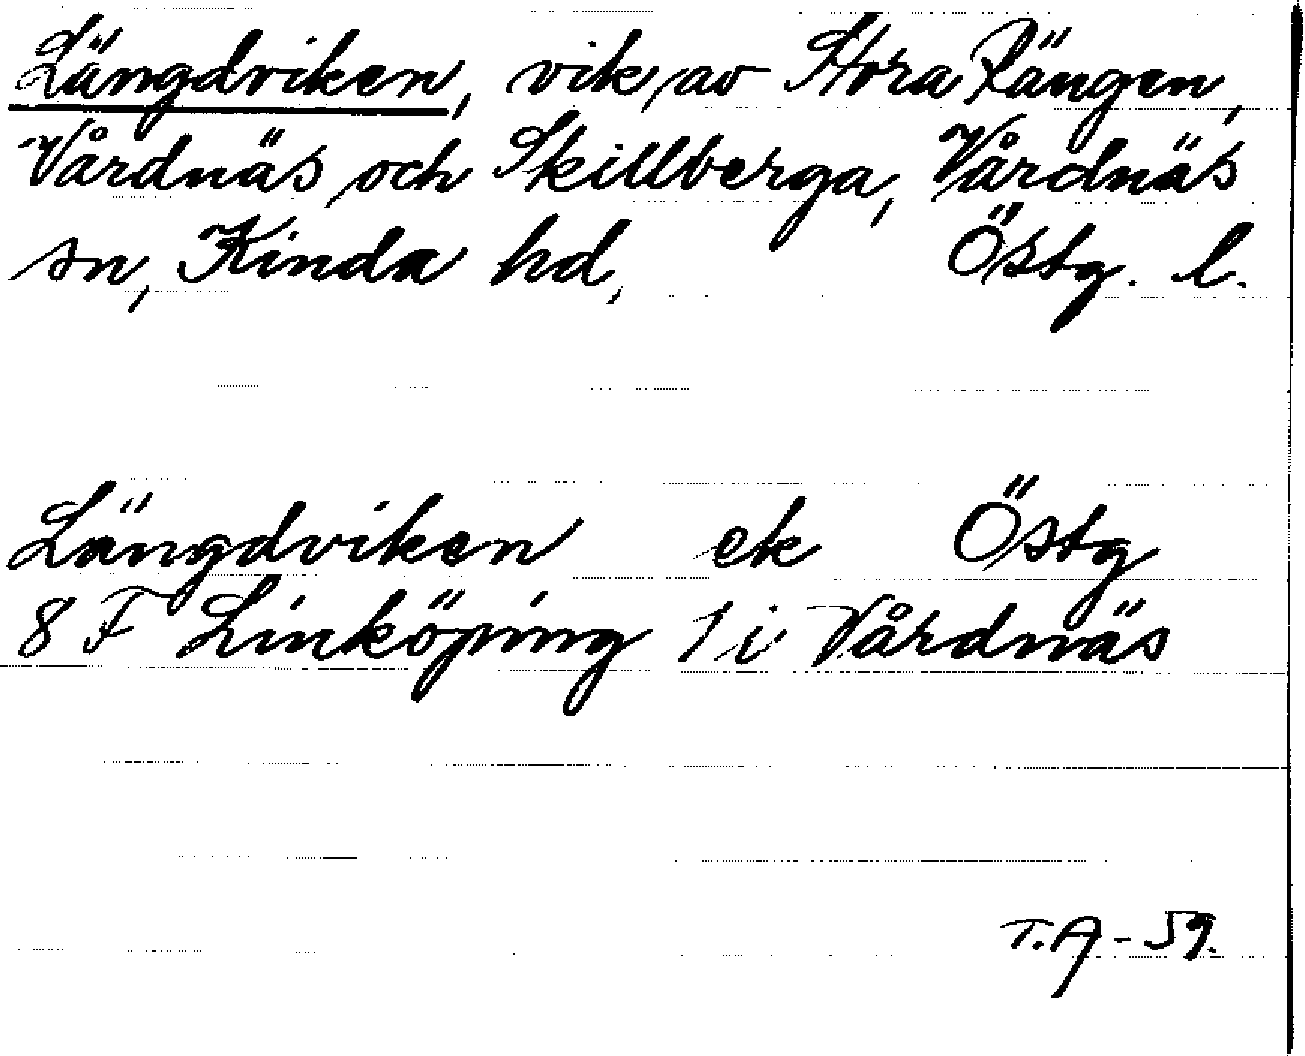 Längdviken, vik av Stora Rängen,
Vårdnäs och Skillberga, Vårdnäs
sn, Kinda hd, Östg. l.
Längdviken ek Östg
8 F Linköping 1 i Vårdnäs
T.A - 59.